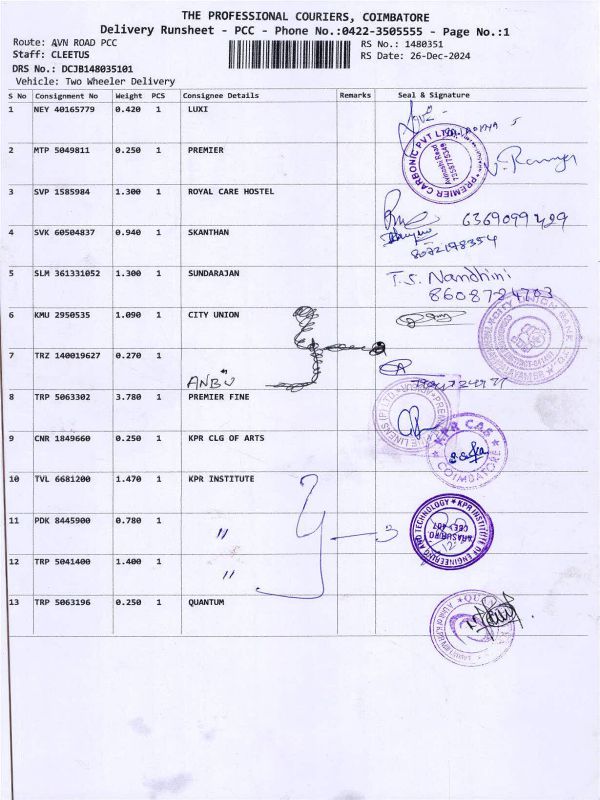 THE PROFESSIONAL COURIERS, COIMBATORE
Delivery Runsheet - PCC - Phone No.:0422-3505555 - Page No.:1
Route: AVN ROAD PCC
RS No.: 1480351
Staff: CLEETUS
RS Date: 26-Dec-2024
DRS No.: DCJB148035101
Vehicle: Two Wheeler Delivery
S No Consignment No Weight PCS Consignee Details Remarks Seal & Signature
1 NEY 40165779 0.420 1 LUXI
2 MTP 5049811 0.250 1 PREMIER
PREMIER CARBONIC PVT LTD
Avinashi Road
3 SVP 1585984 1.300 1 ROYAL CARE HOSTEL
6369099429
4 SVK 60504837 0.940 1 SKANTHAN
8072198354
5 SLM 361331052 1.300 1 SUNDARAJAN
T.S. Nandhini
8608724703
6 KMU 2950535 1.090 1 CITY UNION
7 TRZ 140019627 0.270 1
ANBU
8 TRP 5063302 3.780 1 PREMIER FINE
9 CNR 1849660 0.250 1 KPR CLG OF ARTS
KPR CAS
COIMBATORE
10 TVL 6681200 1.470 1 KPR INSTITUTE
11 PDK 8445900 0.780 1 "
KPR INSTITUTE OF ENGINEERING AND TECHNOLOGY
12 TRP 5041400 1.400 1 "
13 TRP 5063196 0.250 1 QUANTUM